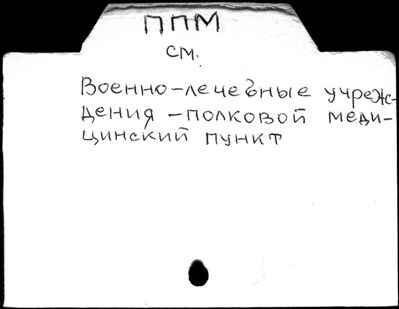 ППМ
см.
Военно-лечебные учреж-
дения - полковой меди-
цинский пункт